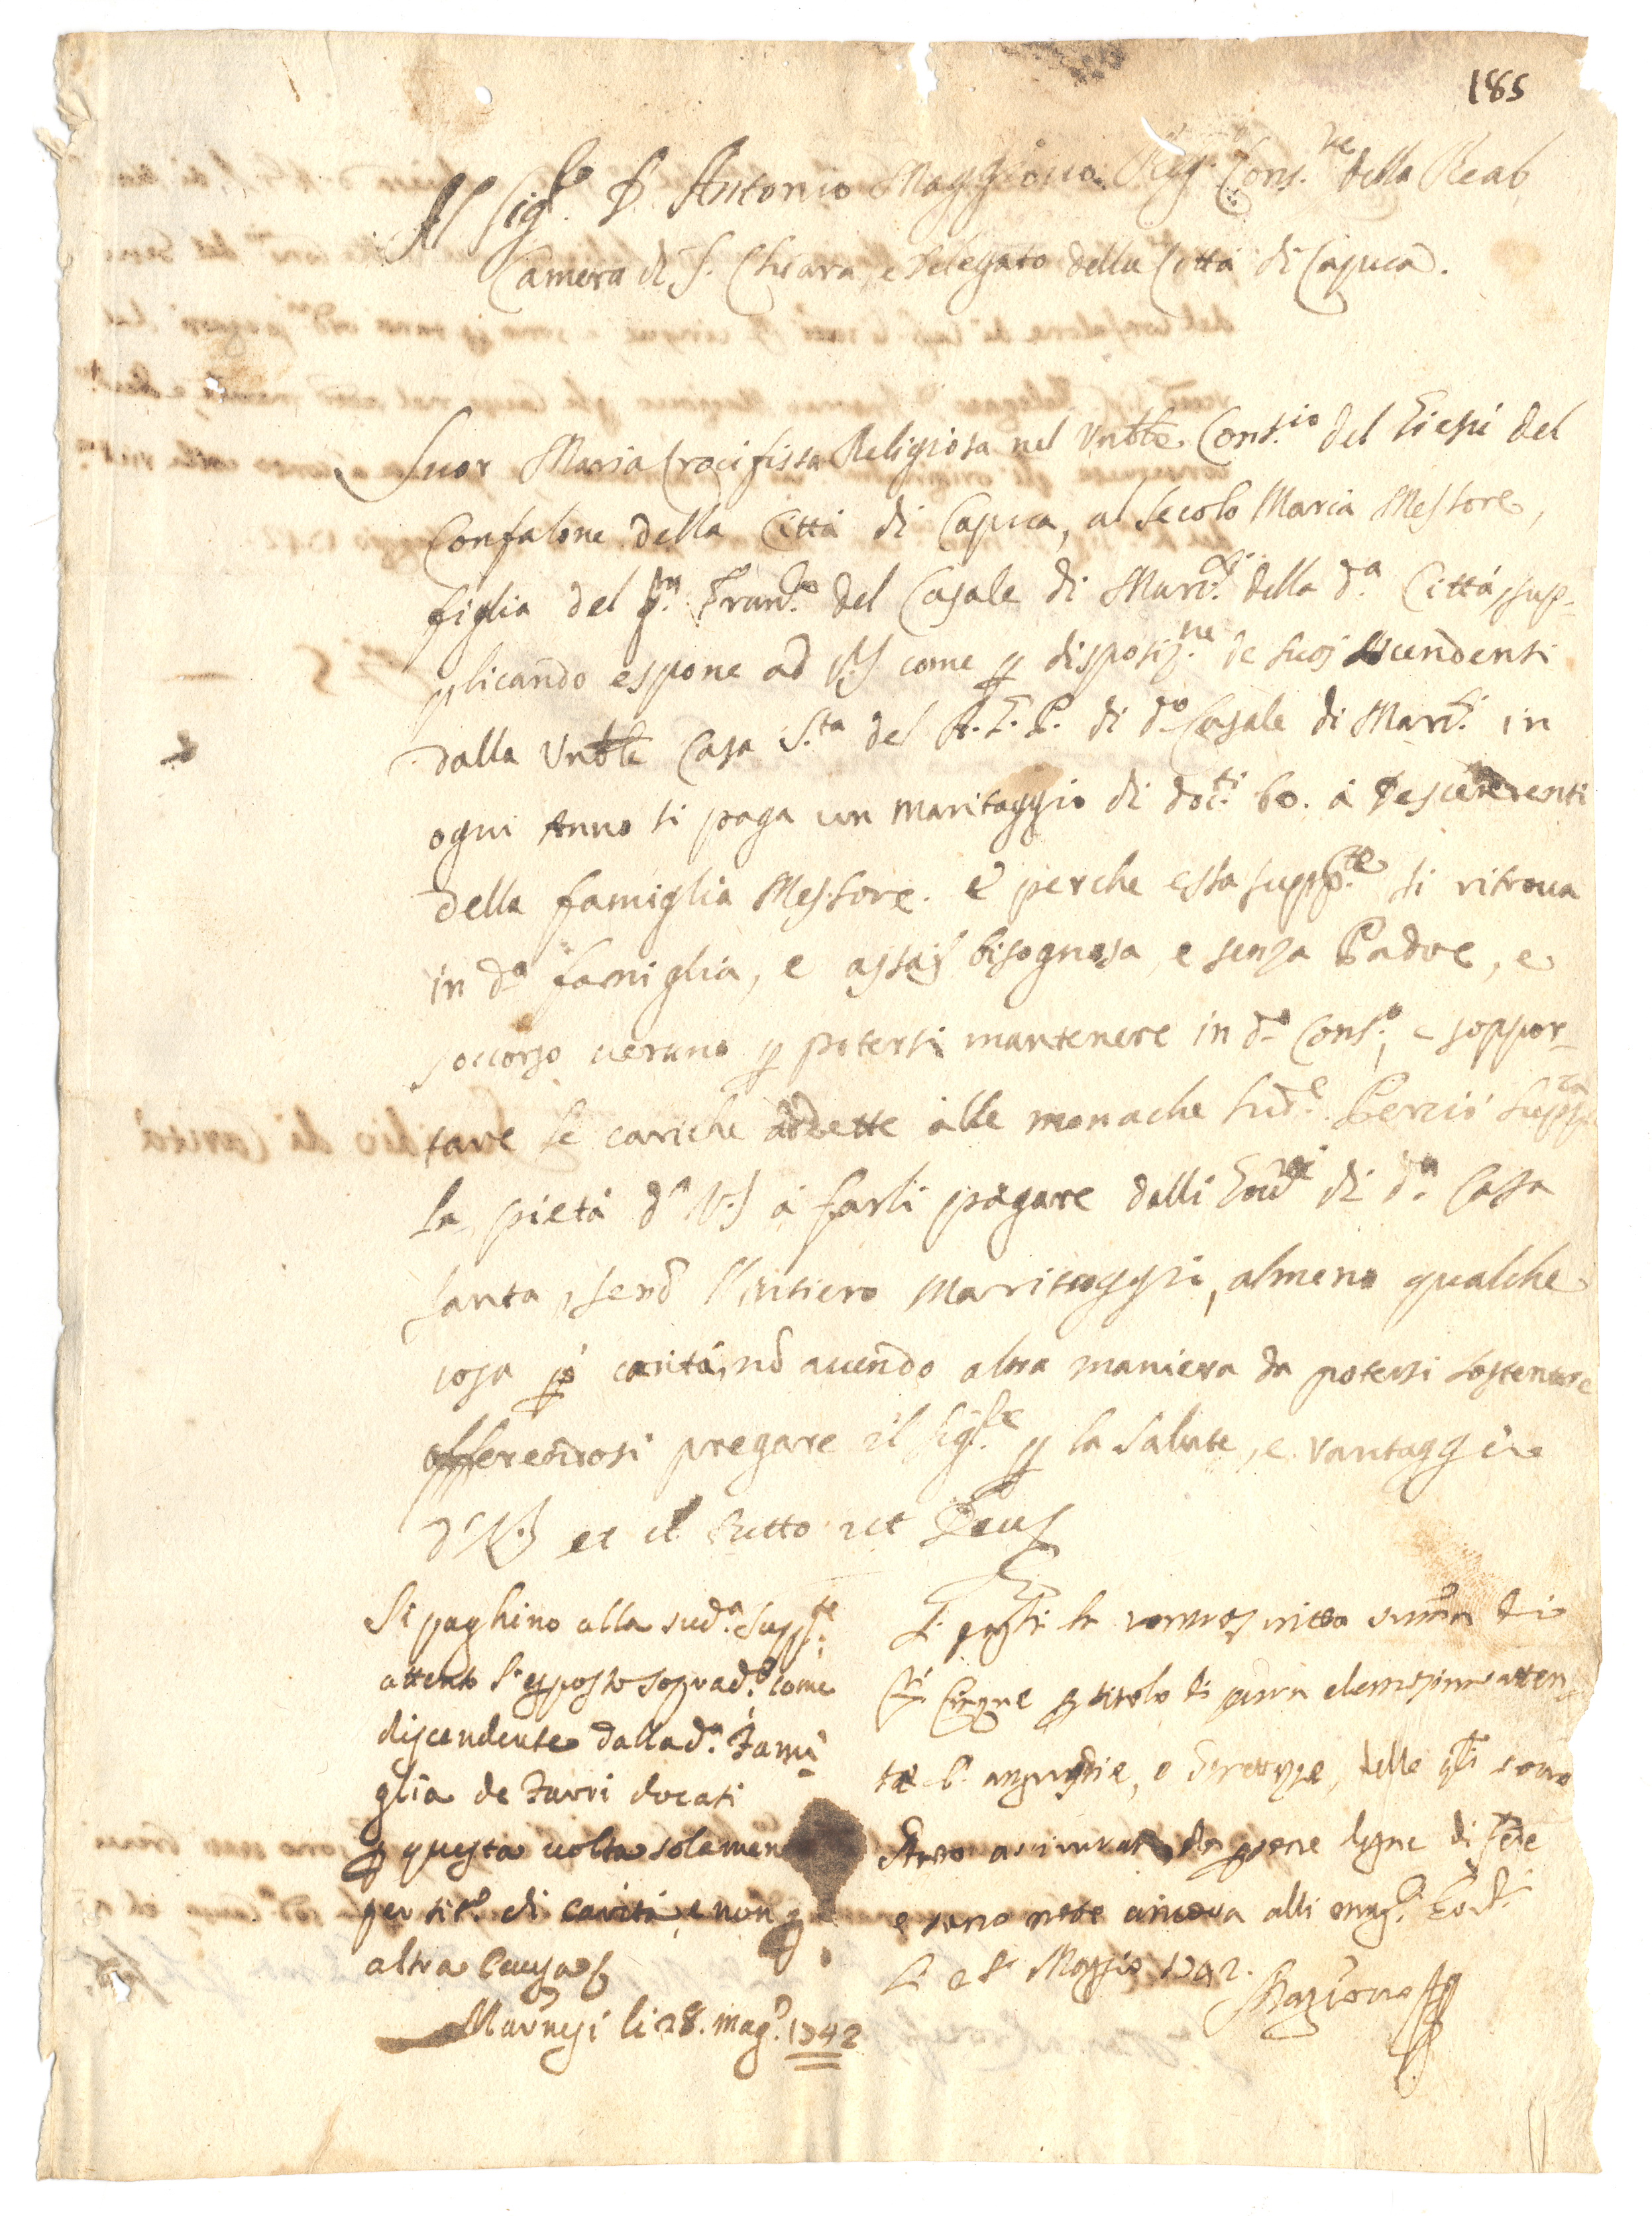 185
Al Sig.re D. Antonio Maggiocco Reg. Cons.re della Real
Camera di S. Chiara, e Delegato della Città di Capua.
Suor Maria Crocifissa Religiosa nel Vnble Cons.io del Giesù del
Confalone della Città di Capua, al secolo Maria Messore,
figlia del qm. Fran.co del Casale di Marc.si della d.a Città, sup-
plicando espone ad V.S come p disposiz.ne de suoi Ascendenti
dalla Vnble Casa S.ta del A.G.P. di d.o Casale di Marc.si in
ogni Anno si paga un maritaggio di doc.ti 60. a Descendenti
della famiglia Messore. e perche essa supp.te si ritroua
in d.a famiglia, e assai bisognosa, e senza Padre, e
soccorso ueruno p potersi mantenere in d.o Cons.o, e soppor-
tare le cariche addette alle monache sud.e Perciò supp.ca
la pietà d' V.S a farli pagare dalli Gov.ri di d.a Casa
santa, senō l'intiero Maritaggio, almeno qualche
cosa p carità, nō auendo altra maniera da potersi sostentare
offerendosi pregare il Sig.re p la salute, e vantaggio
d' V.S et il tutto ut Deus
Si paghino alla sud.a supp.te
attento l'esposto soprad.o come
discendente dalla d.a Fami-
glia de Jarri docati
p questa uolta solamen
per tit.o di carità, e non p
altra causa
Marnesi li 28. mag.o 1742
Si paghi la
Cinque p titolo di pura elemosina atten
ta l'angustie, e strettezze, delle q.li sono
stato assicurato da persone degne di fede
e sono note ancora alli mag.ci Gov.ri
Maggio 1742.
Maggiocco